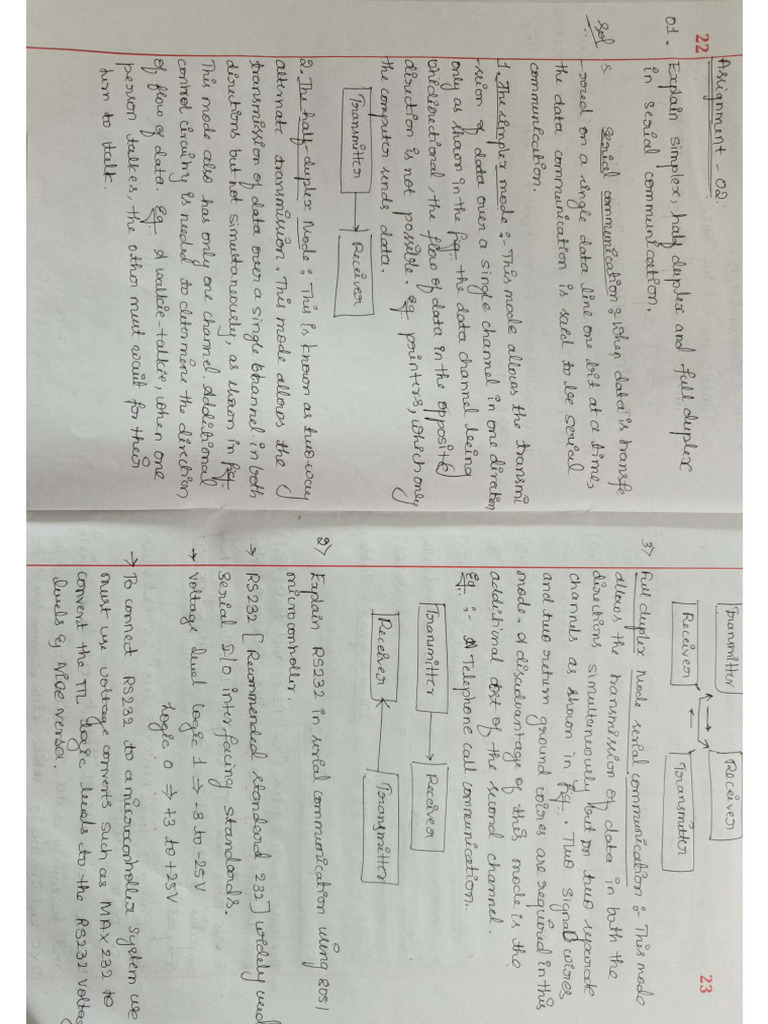 22
Assignment - 02
01. Explain simplex, half duplex and full duplex
in serial communication.
Sol :- Serial communication : When data is transfe
-rred on a single data line one bit at a times
the data communication is said to be serial
communication.
1. The simplex mode :- This mode allows the transmi
-sion of data over a single channel in one diration
only as shown in the fig. the data channel being
unidirectional, the flow of data in the opposite
direction is not possible. Eg pointers, which only
the computer sends data.
Transmitter → Receiver
2. The half duplex Mode : This is known as two way
alternate transmission. This mode allows the
transmission of data over a single channel in both
directions but not simultaneously, as shown in fig.
This mode also has only one channel. Additional
control circuitry is needed to determine the direction
of flow of data. Eg. A walkie-talkie, when one
person talkes, the other must wait for their
turn to talk.
23
Transmitter Receiver
Receiver Transmitter
3) Full duplex Mode serial communication :- This mode
allows the transmission of data in both the
directions simultaneously but on two separate
channels as shown in fig. Two signal wires
and two return ground wires are required in this
mode. A disadvantage of this mode is the
additional cost of the second channel.
Eg. :- A Telephone call communication.
Transmitter → Receiver
Receiver ← Transmitter
2) Explain RS232 in serial communication using 8051
microcontroller.
→ RS232 [Recommended standard 232] widely used
serial I/o interfacing standards.
→ Voltage level logic 1 ⇒ -3 to -25V
Logic 0 ⇒ +3 to +25V
→ To connect RS232 to a microcontroller system we
must use voltage converts such as MAX232 to
convert the TTL logic levels to the RS232 voltag
levels & vice versa.